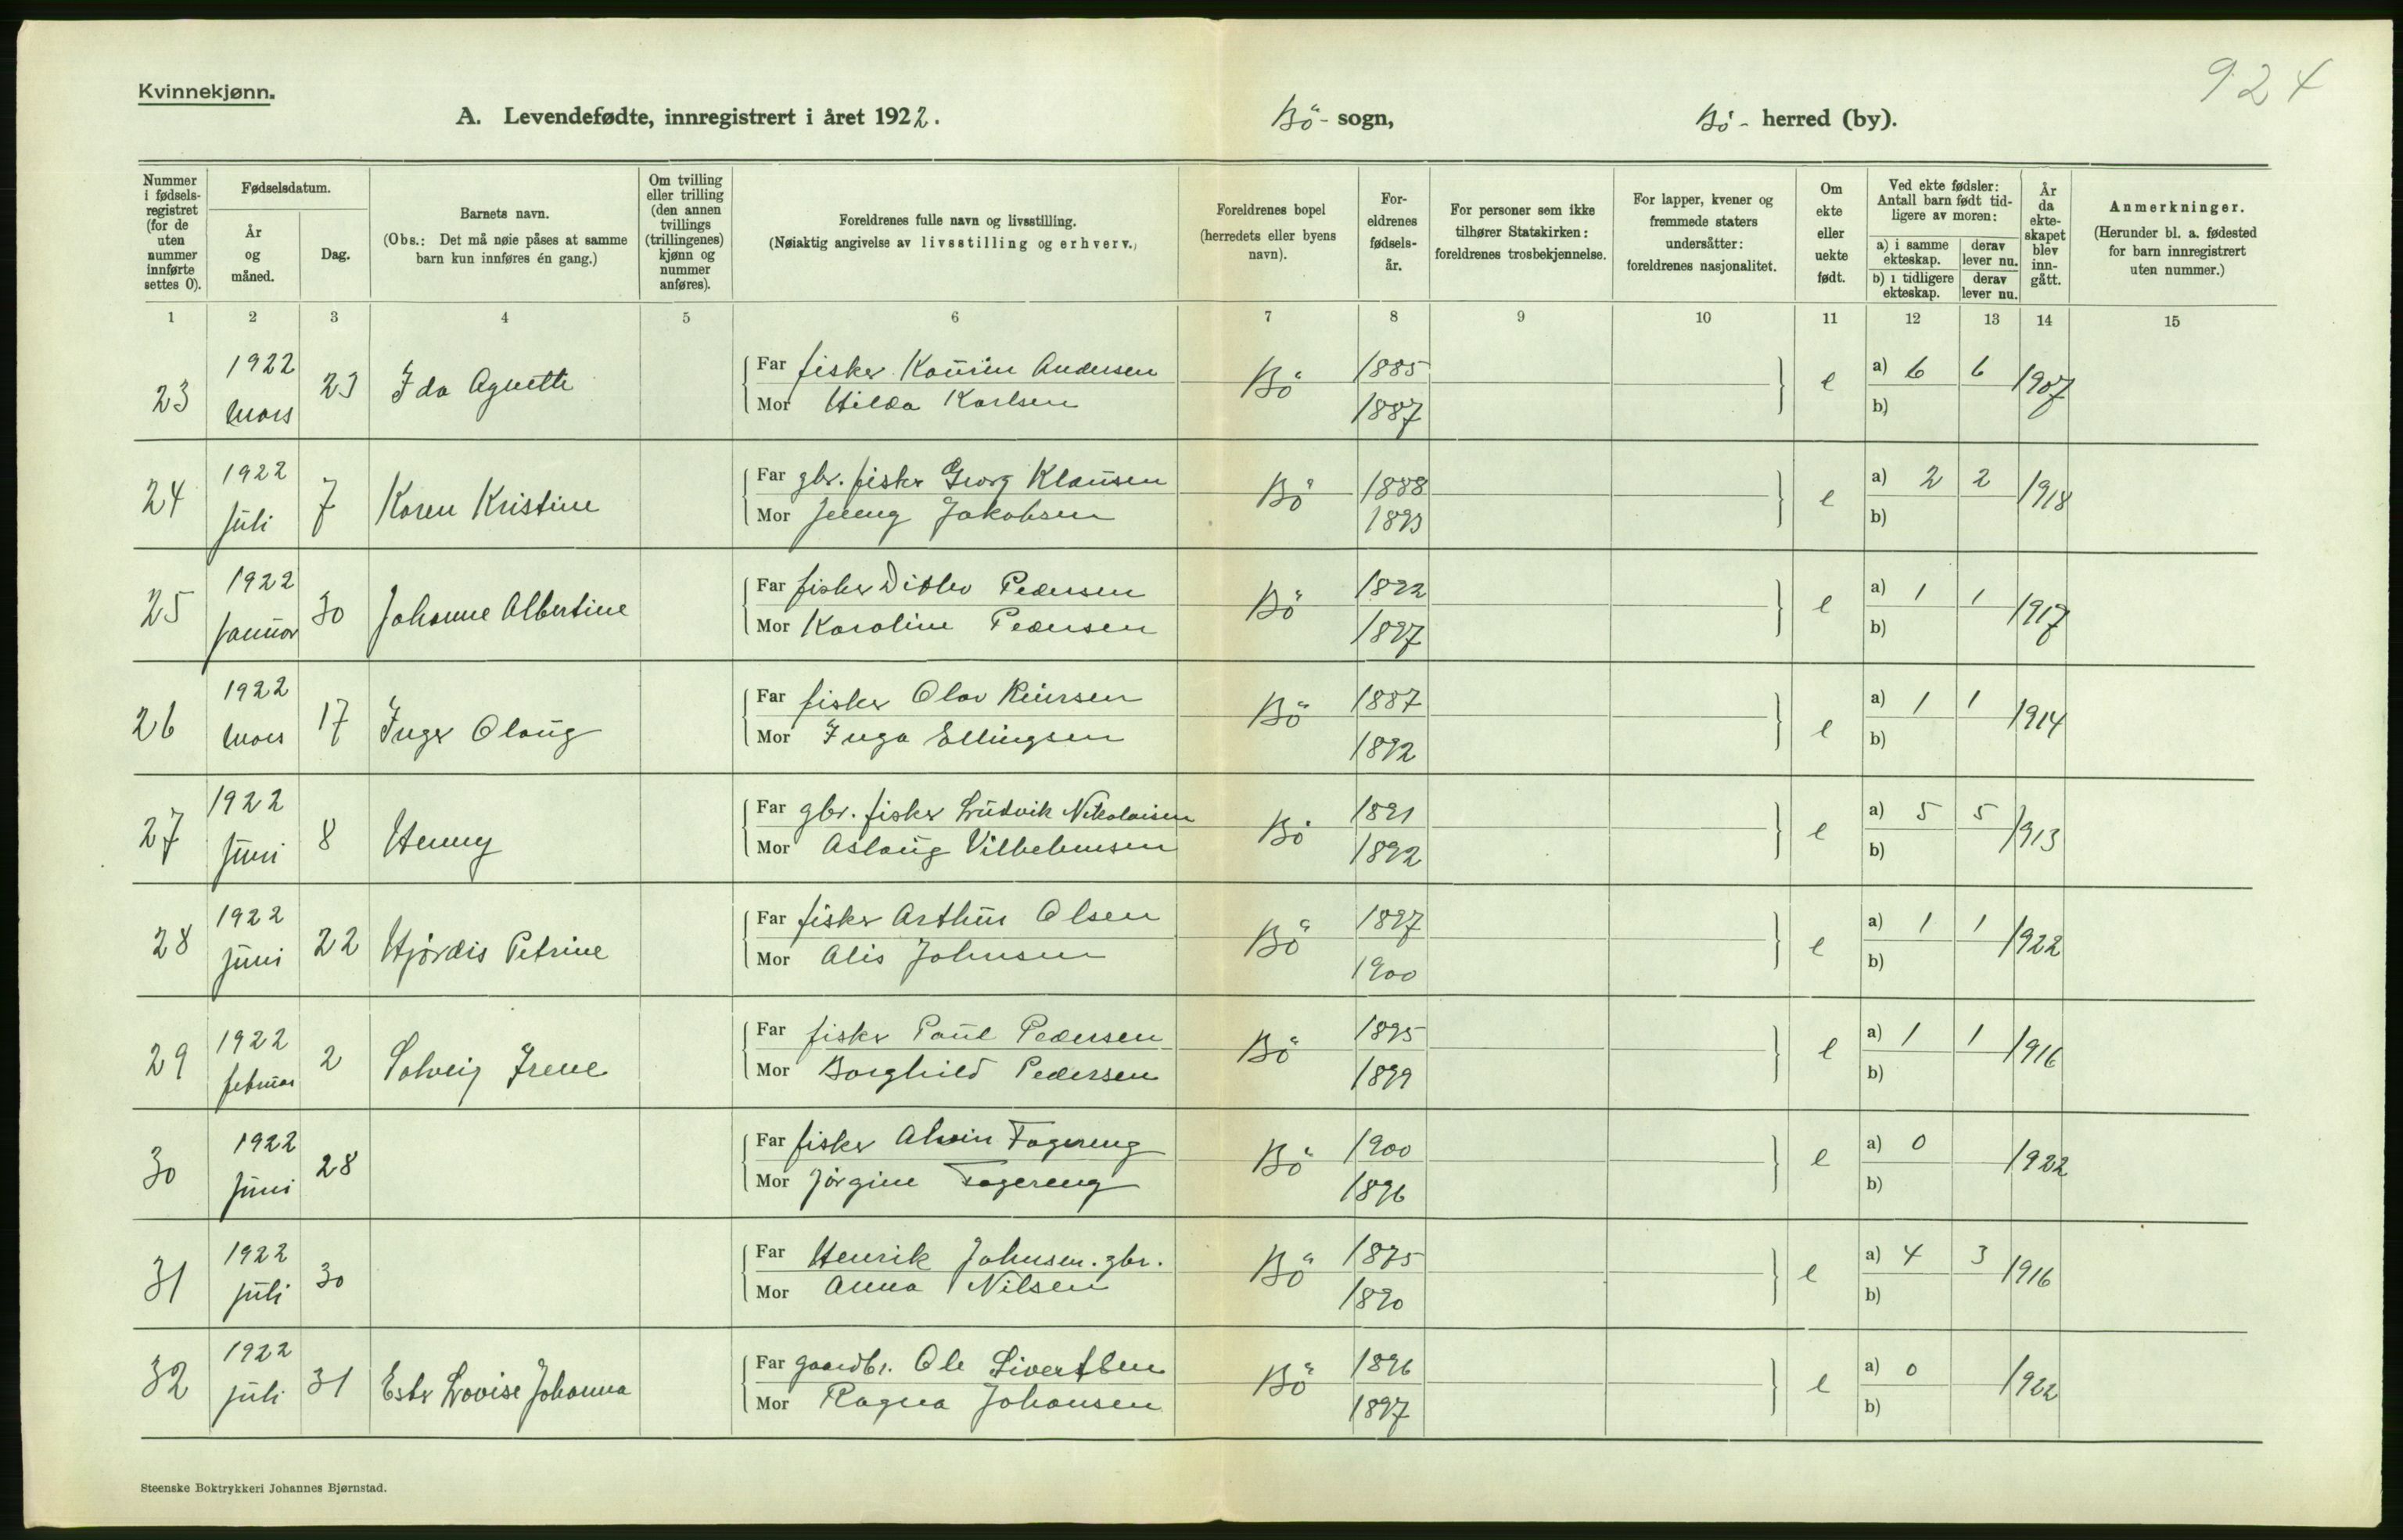 924
Kvinnekjønn.
A. Levendefødte, innregistrert i året 1922. Bö- sogn, Bö- herred (by).
Nummer i fødsels-registret (for de uten nummer innførte settes 0).
Fødselsdatum.
År og måned.
Dag.
Barnets navn.
(Obs.: Det må nøie påses at samme barn kun innføres én gang.)
Om tvilling eller trilling (den annen tvillings (trillingenes) kjønn og nummer anføres).
Foreldrenes fulle navn og livsstilling.
(Nøiaktig angivelse av livsstilling og erhverv.)
Foreldrenes bopel (herredets eller byens navn).
For-eldrenes fødsels-år.
For personer som ikke tilhører Statskirken: foreldrenes trosbekjennelse.
For lapper, kvener og fremmede staters undersåtter: foreldrenes nasjonalitet.
Om ekte eller uekte født.
Ved ekte fødsler: Antall barn født tid-ligere av moren:
a) i samme ekteskap. derav lever nu.
b) i tidligere ekteskap. derav lever nu.
År da ekte-skapet blev inn-gått.
Anmerkninger.
(Herunder bl. a. fødested for barn innregistrert uten nummer.)
1 2 3 4 5 6 7 8 9 10 11 12 13 14 15
23 1922 mars 23 Ida Agnethe Far fisker Andersen Bö 1885 e a) 6 6 1907
Mor Hilda Karlsen 1887 b)
24 1922 juli 7 Karen Kristine Far gbr. fisker Georg Klausen Bö 1888 e a) 2 2 1918
Mor Jenny Jakobsen 1893 b)
25 1922 januar 30 Johanne Albertine Far fisker Ditlev Pedersen Bö 1892 e a) 1 1 1917
Mor Karoline Pedersen 1897 b)
26 1922 mars 17 Inger Olaug Far fisker Olav Bö 1887 e a) 1 1 1914
Mor Inga Ellingsen 1892 b)
27 1922 juni 8 Henny Far gbr. fisker Ludvik Nikolaisen Bö 1891 e a) 5 5 1913
Mor Aslaug Vilhelmsen 1892 b)
28 1922 juni 22 Hjördis Petrine Far fisker Arthur Olsen Bö 1897 e a) 1 1 1922
Mor Alis Johnsen 1900 b)
29 1922 februar 2 Solveig Irene Far fisker Paul Pedersen Bö 1895 e a) 1 1 1916
Mor Borghild Pedersen 1899 b)
30 1922 juni 28 Far fisker Alvin Fagereng Bö 1900 e a) 0 1922
Mor Jörgine Fagereng 1896 b)
31 1922 juli 30 Far Henrik Johnsen. gbr. Bö 1875 e a) 4 3 1916
Mor Anna Nilsen 1890 b)
32 1922 juli 31 Ester Lovise Johanna Far gaardbr. Ole Sivertsen Bö 1896 e a) 0 1922
Mor Ragna Johansen 1897 b)
Steenske Boktrykkeri Johannes Bjørnstad.